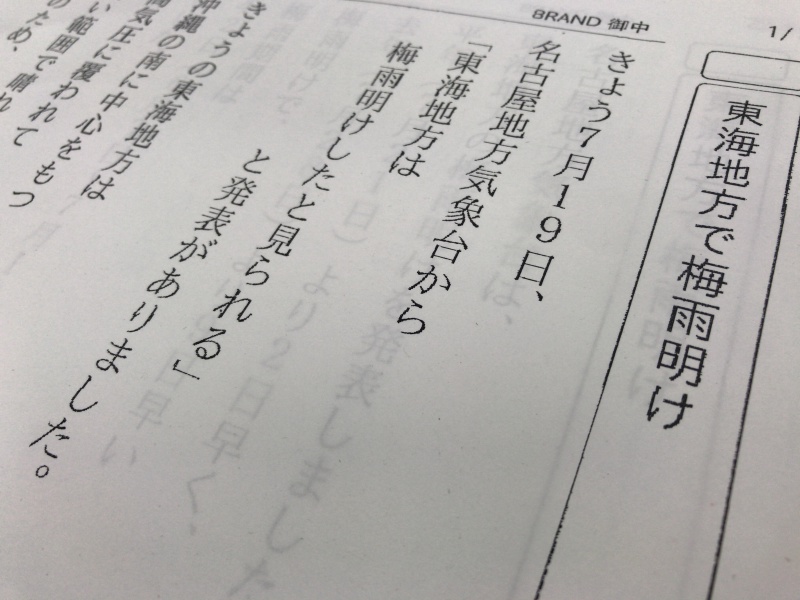 BRAND 御中
1/
東海地方で梅雨明け
きょう7月19日、
名古屋地方気象台から
「東海地方は
梅雨明けしたと見られる」
と発表がありました。
きょうの東海地方は
沖縄の南に中心をもつ
気圧に覆われて
い範囲で晴れ
のため、